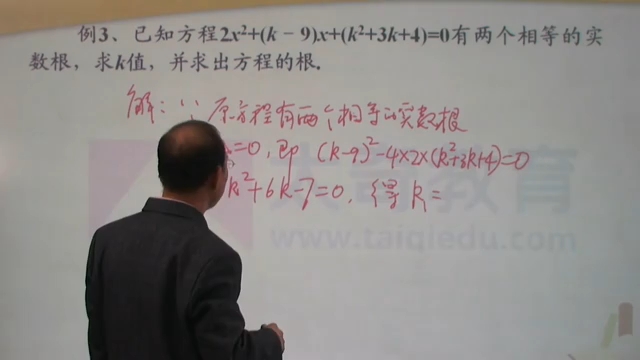 例3、已知方程2x²+(k－9)x+(k²+3k+4)=0有两个相等的实
数根，求k值，并求出方程的根.
解：∵原方程有两个相等的实数根
=0，即 (k-9)²-4×2×(k²+3k+4)=0
k²+6k-7=0，得k=
太奇教育
www.taiqiedu.com